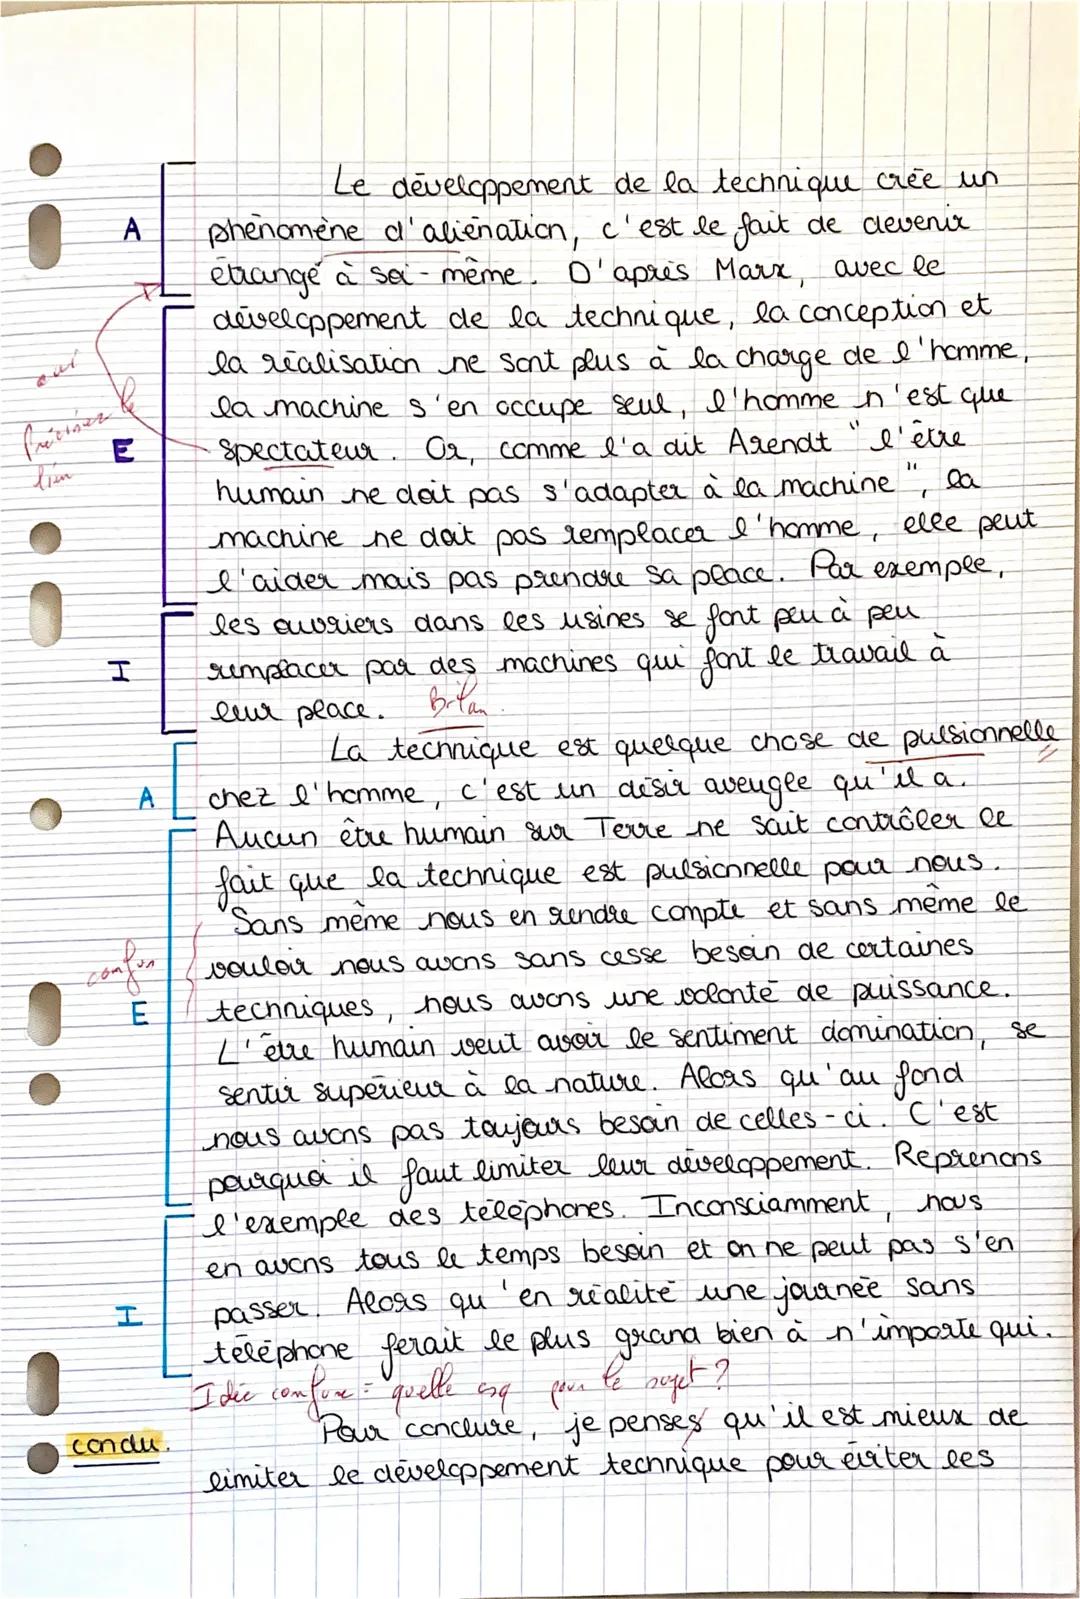 Le développement de la technique crée un
A phénomène d'aliénation, c'est le fait de devenir
étrangé à soi-même. D'après Marx, avec le
développement de la technique, la conception et
la réalisation ne sont plus à la charge de l'homme,
oui
la machine s'en occupe seul, l'homme n'est que
Préciser le lien
E spectateur. Or, comme l'a dit Arendt "l'être
humain ne doit pas s'adapter à la machine", la
machine ne doit pas remplacer l'homme, elle peut
l'aider mais pas prendre sa place. Par exemple,
les ouvriers dans les usines se font peu à peu
I remplacer par des machines qui font le travail à
leur place. Bilan.
La technique est quelque chose de pulsionnelle
A chez l'homme, c'est un désir aveugle qu'il a.
Aucun être humain sur Terre ne sait contrôler le
fait que la technique est pulsionnelle pour nous.
Sans même nous en rendre compte et sans même le
confus vouloir nous avons sans cesse besoin de certaines
E techniques, nous avons une volonté de puissance.
L'être humain veut avoir le sentiment domination, se
sentir supérieur à la nature. Alors qu'au fond
nous avons pas toujours besoin de celles-ci. C'est
pourquoi il faut limiter leur développement. Reprenons
l'exemple des téléphones. Insconsciamment, nous
en avons tous le temps besoin et on ne peut pas s'en
I passer. Alors qu'en réalité une journée sans
téléphone ferait le plus grand bien à n'importe qui.
Idée confuse = quelle csq pour le sujet ?
Pour conclure, je penses qu'il est mieux de
conclu.
limiter le développement technique pour éviter les